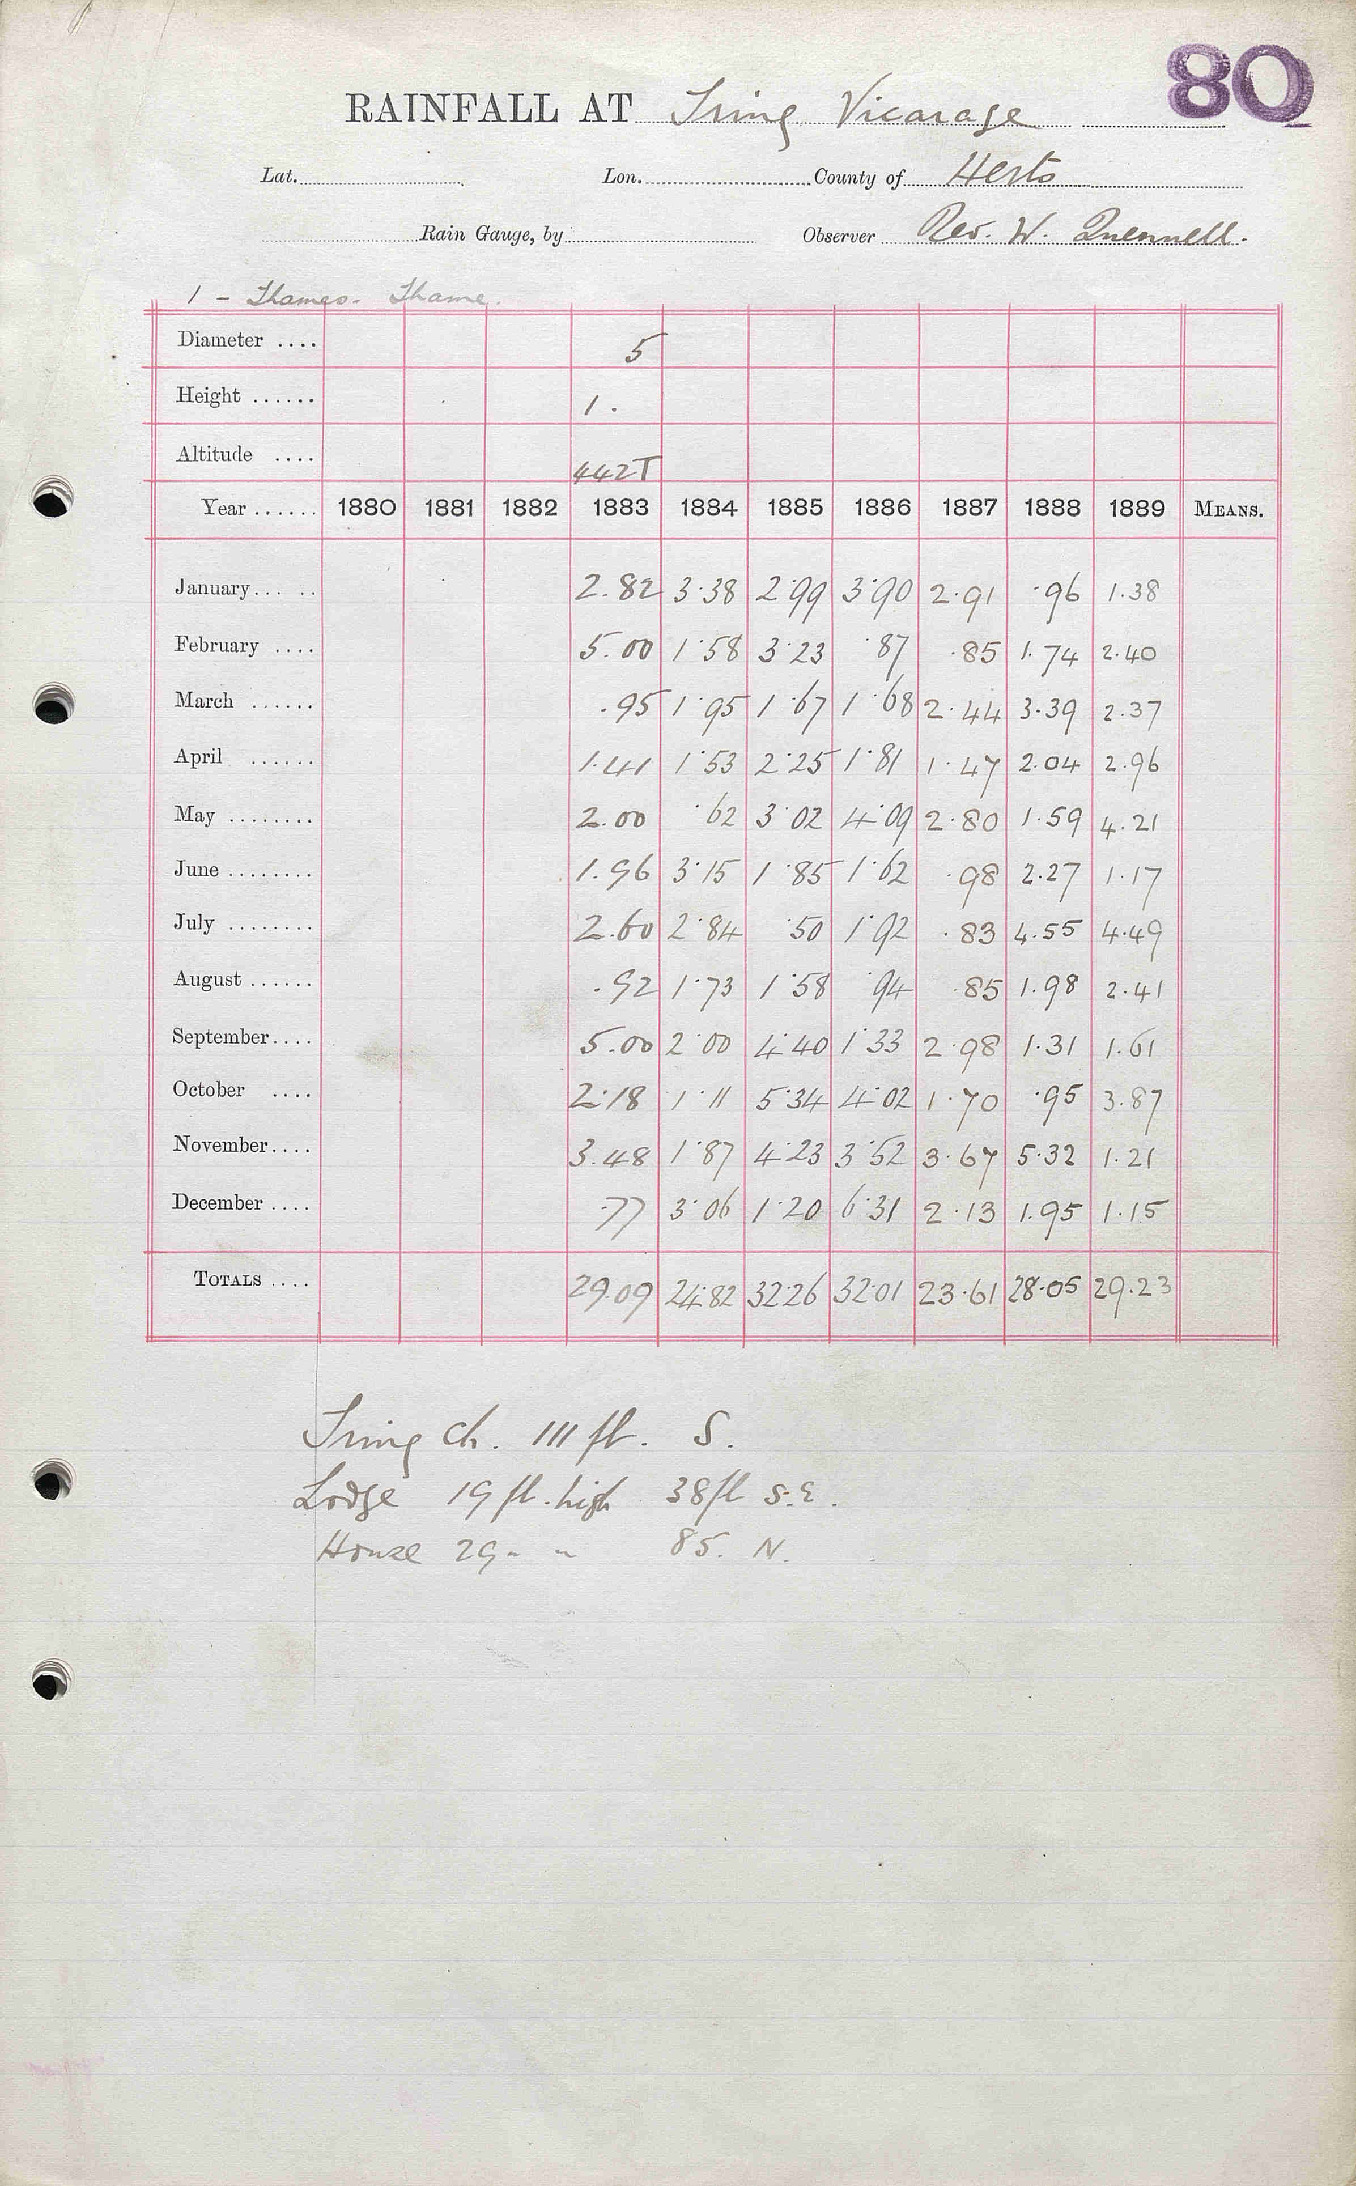 80
RAINFALL AT Tring Vicarage
Lat. Lon. County of Herts
Rain Gauge, by Observer Rev. W. Quennell.
1 - Thames. Thame.
Diameter .... 5
Height ...... 1.
Altitude .... 442T
Year ...... 1880 1881 1882 1883 1884 1885 1886 1887 1888 1889 MEANS.
January... .. 2.82 3.38 2.99 3.90 2.91 .96 1.38
February .... 5.00 1.58 3.23 .87 .85 1.74 2.40
March ...... .95 1.95 1.67 1.68 2.44 3.39 2.37
April ...... 1.41 1.53 2.25 1.81 1.47 2.04 2.96
May ........ 2.00 .62 3.02 4.09 2.80 1.59 4.21
June ........ 1.96 3.15 1.85 1.62 .98 2.27 1.17
July ........ 2.60 2.84 .50 1.92 .83 4.55 4.49
August ...... .92 1.73 1.58 .94 .85 1.98 2.41
September.... 5.00 2.00 4.40 1.33 2.98 1.31 1.61
October .... 2.18 1.11 5.34 4.02 1.70 .95 3.87
November.... 3.48 1.87 4.23 3.52 3.67 5.32 1.21
December .... .77 3.06 1.20 6.31 2.13 1.95 1.15
TOTALS .... 29.09 24.82 32.26 32.01 23.61 28.05 29.23
Tring Ch. 111 ft. S.
Lodge 19 ft. high 38ft S.E.
House 29 " " 85. N.